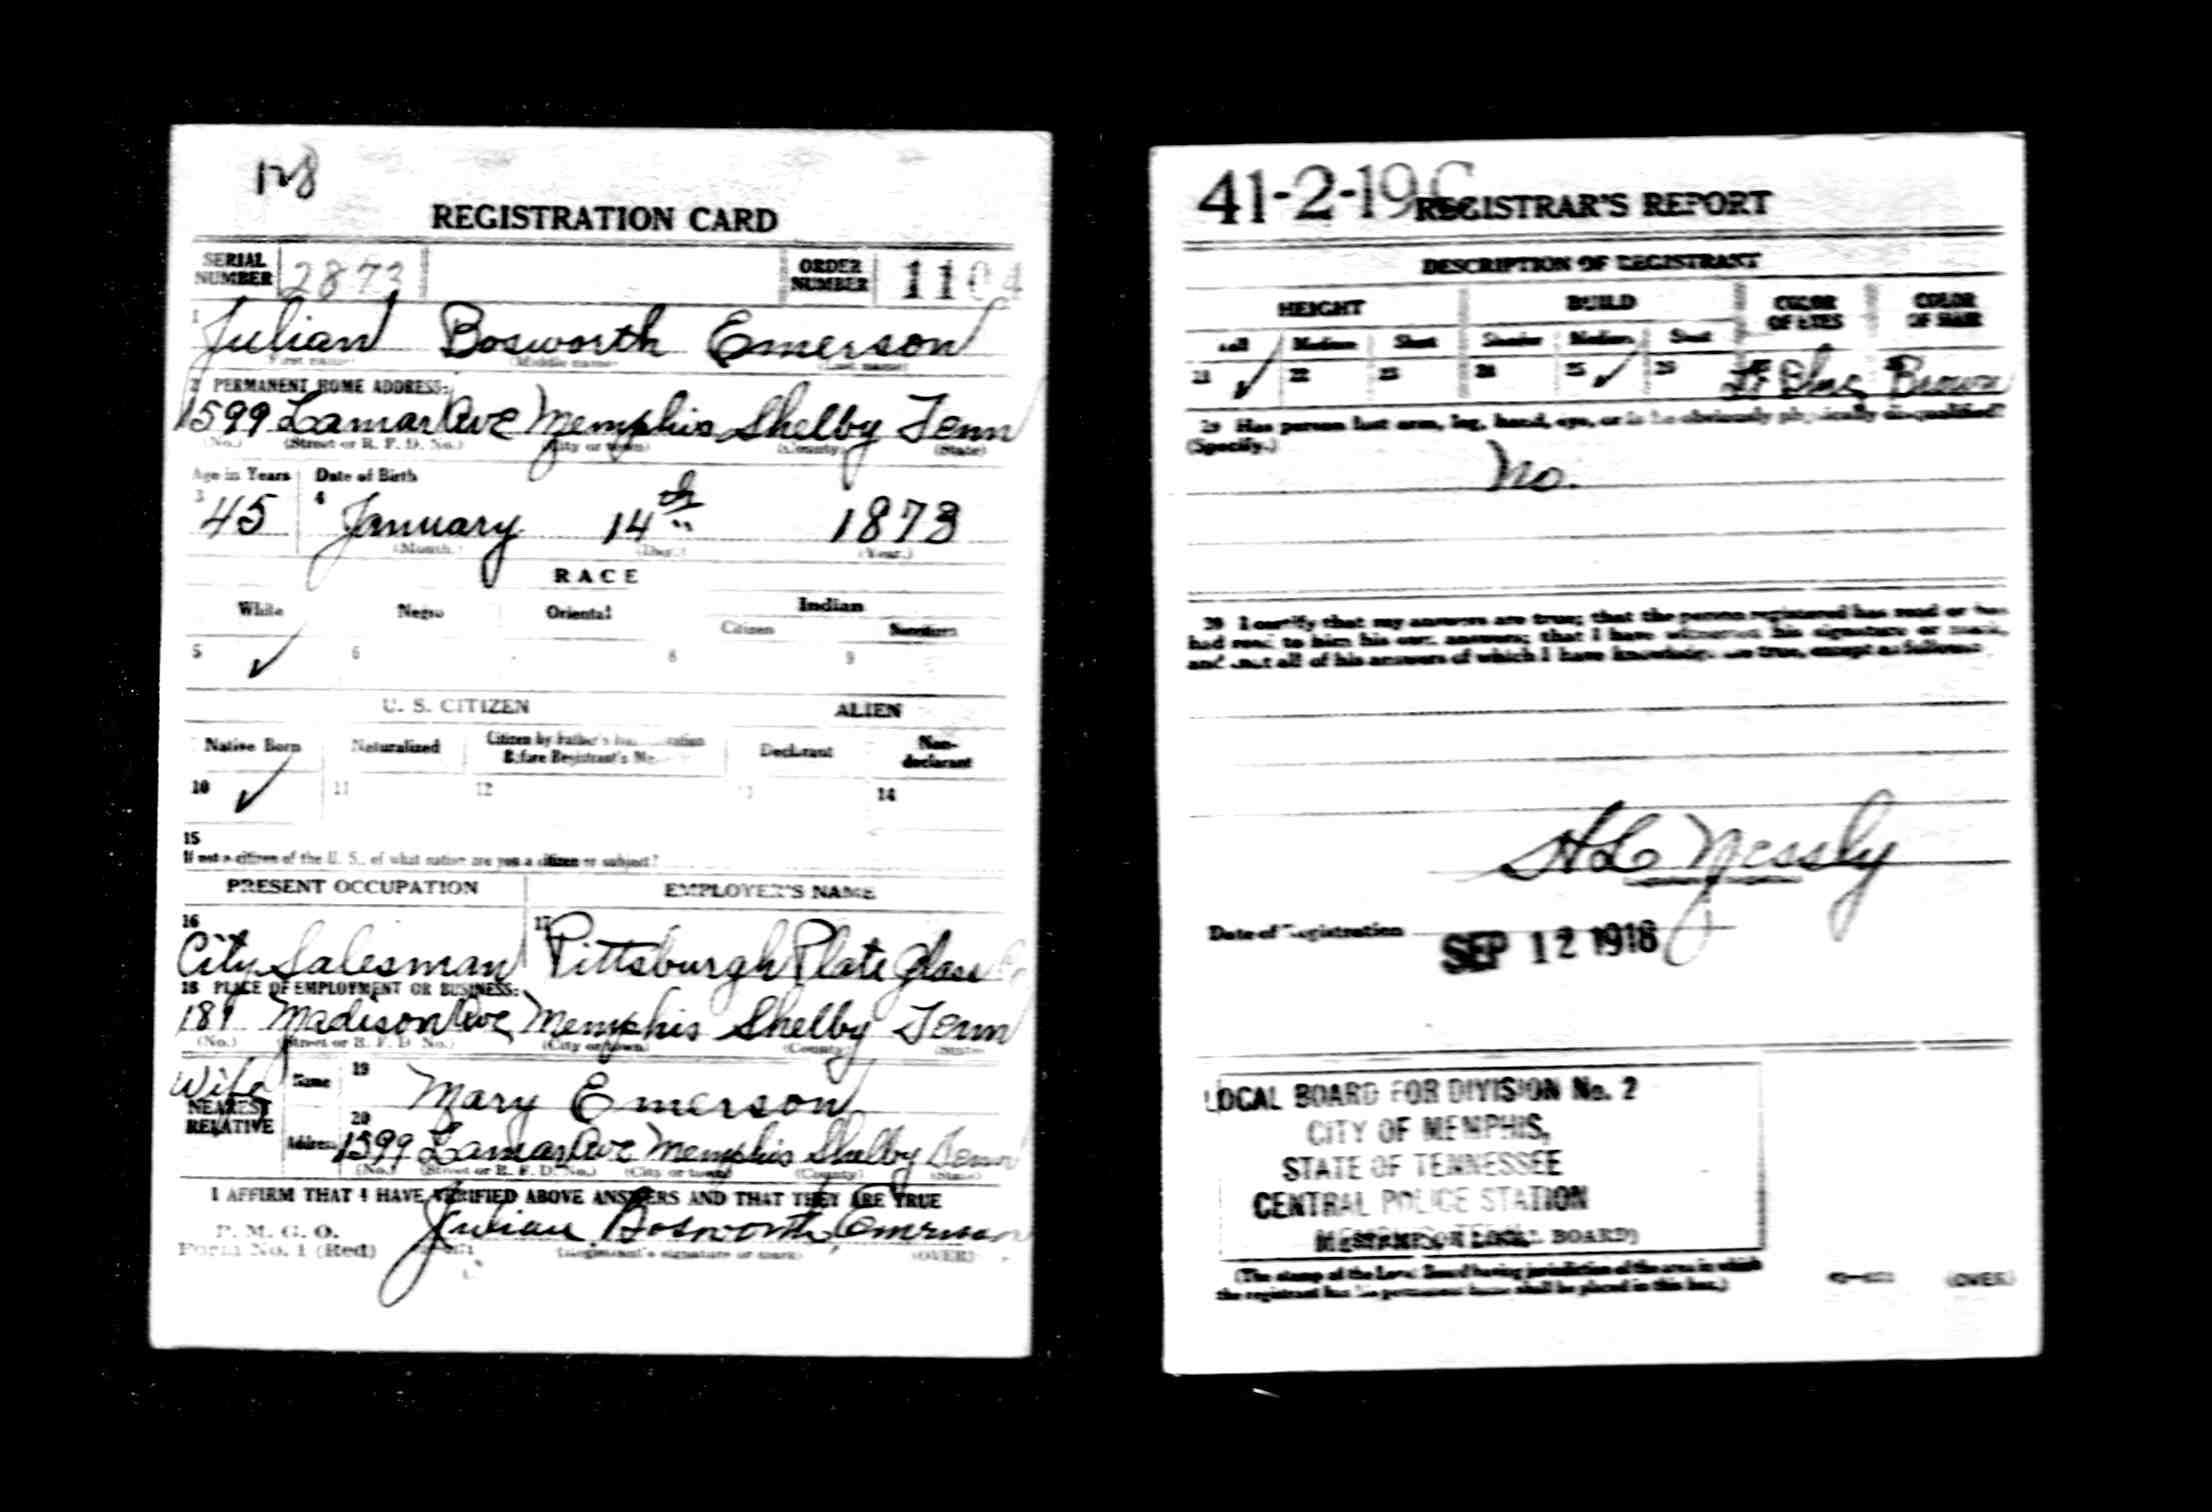 128
REGISTRATION CARD
SERIAL NUMBER 2873 ORDER NUMBER 1104
1 Julian Bosworth Emerson
First name Middle name (Last name)
2 PERMANENT HOME ADDRESS:
1599 Lamar Ave Memphis Shelby Tenn
(No.) (Street or R. F. D. No.) (City or town) (County) (State)
Age in Years Date of Birth
3 45 4 January 14th 1873
(Month.) (Day.) (Year.)
RACE
White Negro Oriental Indian
Citizen
5 ✓ 6 8 9
U. S. CITIZEN ALIEN
Native Born Naturalized Citizen by Father's Before Registrant's Declarant Non-declarant
10 ✓ 11 12 13 14
15
If not a citizen of the U. S., of what nation are you a citizen or subject?
PRESENT OCCUPATION EMPLOYER'S NAME
16 City Salesman 17 Pittsburgh Plate Glass Co
18 PLACE OF EMPLOYMENT OR BUSINESS:
181 Madison Ave Memphis Shelby Tenn
(No.) (Street or R. F. D. No.) (City or town) (County) (State)
Wife
NEAREST RELATIVE
Name 19 Mary Emerson
Address 20 1599 Lamar Ave Memphis Shelby Tenn
(No.) (Street or R. F. D. No.) (City or town) (County) (State)
I AFFIRM THAT I HAVE VERIFIED ABOVE ANSWERS AND THAT THEY ARE TRUE
P. M. G. O.
Form No. 1 (Red) Julian Bosworth Emerson
(Registrant's signature or mark) (OVER)
41-2-19 C
REGISTRAR'S REPORT
DESCRIPTION OF REGISTRANT
HEIGHT BUILD COLOR OF EYES COLOR OF HAIR
Tall Medium Short Slender Medium Stout
21 ✓ 22 23 24 25 ✓ 26 Lt Blue Brown
29 Has person lost arm, leg, hand, eye, or is he obviously physically disqualified?
(Specify.)
No.
30 I certify that my answers are true; that the person registered has read or has
had read to him his own answers; that I have witnessed his signature or mark,
and that all of his answers of which I have knowledge are true, except as follows:
H L Nessly
Date of Registration SEP 12 1918
LOCAL BOARD FOR DIVISION No. 2
CITY OF MEMPHIS,
STATE OF TENNESSEE
CENTRAL POLICE STATION
BOARD)
(The stamp of the Local Board having jurisdiction of the area in which
the registrant has his permanent home shall be placed in this box.)
(OVER)